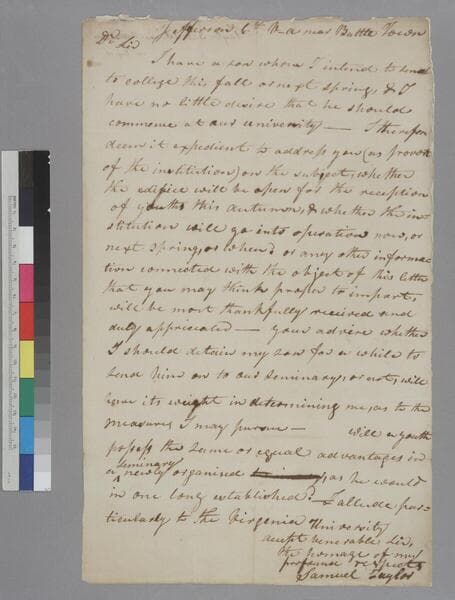 Jefferson Cty Va near Battle Town
Dr Sir
I have a son whom I intend to send
to college this fall or next spring, & I
have no little desire that he should
commence at our university — I therefore
deem it expedient to address you (as provost
of the institution) on the subject, whether
the edifice will be open for the reception
of youths this autumn, & whether the in-
stitution will go into operation now, or
next spring, or when? or any other informa
tion connected with the object of this letter
that you may think proper to impart,
will be most thankfully received and
duly appreciated — your advice whether
I should detain my son for a while to
send him on to our seminary, or not, will
have its weight in determining me, as to the
measures I may pursue — will a youth
possess the same or equal advantages in
seminary
a newly organised as he would
in one long established? I allude par-
ticularly to the Virginia University
accept venerable Sir,
the homage of my
profound respects
Samuel Taylor